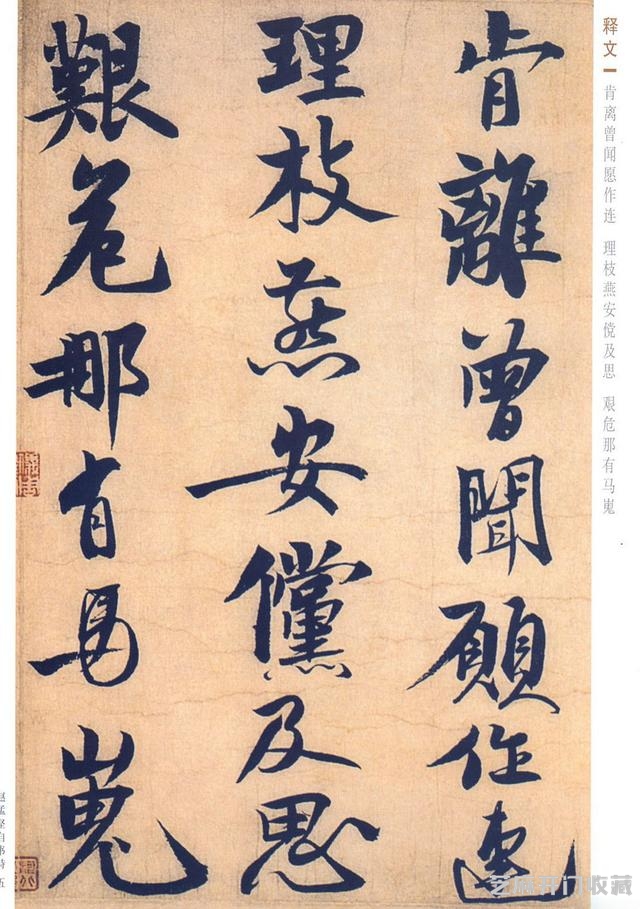 释文
肯离曾闻愿作连 理枝燕安傥及思 艰危那有马嵬
肯離曾聞願作連
理枝燕安儻及思
艱危那有馬嵬
赵孟坚自书诗 五
芝麻开门收藏